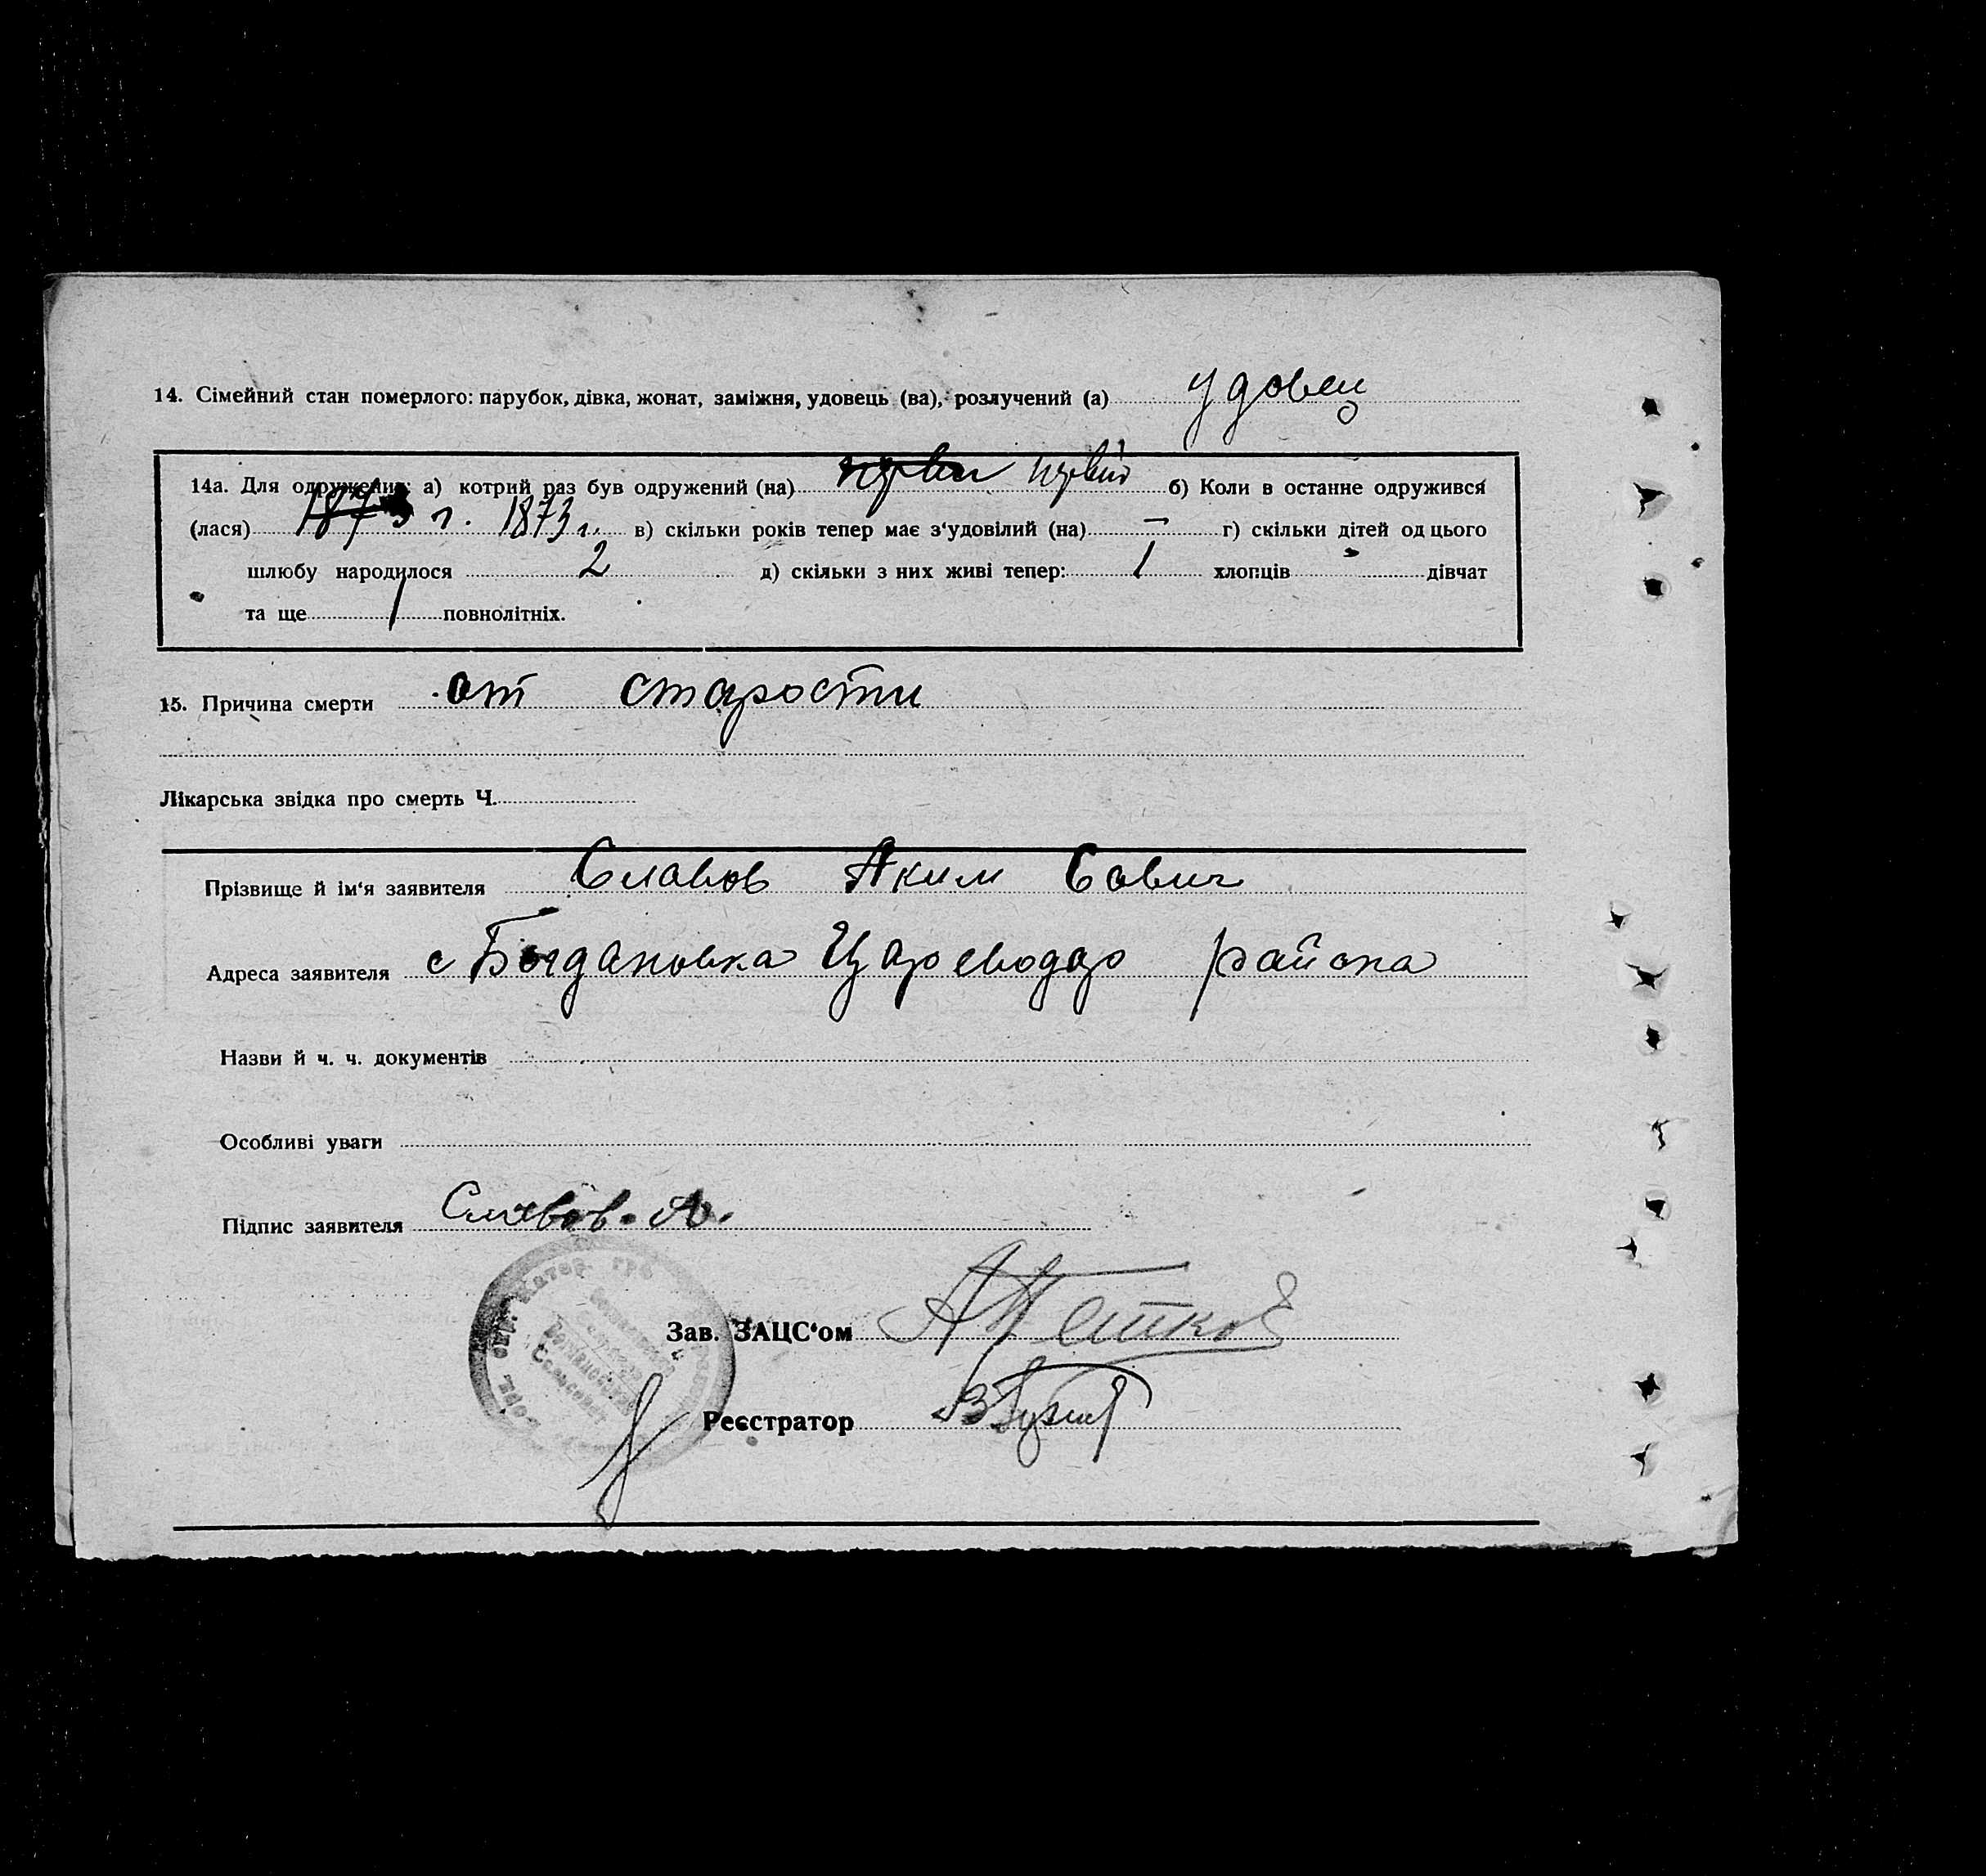 14. Сімейний стан померлого: парубок, дівка, жонат, заміжня, удовець (ва), розлучений (а) удовец
14а. Для одружених: а) котрий раз був одружений (на) перви первий б) Коли в останне одружився
(лася) 1873 г. 1873 г. в) скільки років тепер має з‘удовілий (на) — г) скільки дітей од цього
шлюбу народилося 2 д) скільки з них живі тепер: 1 хлопців - дівчат
та ще 1 повнолітніх.
15. Причина смерти от старости
Лікарська звідка про смерть Ч.
Прізвище й ім‘я заявителя Славов Аким Савич
Адреса заявителя с Богдановка Цареводар района
Назви й ч. ч. документів
Особливі уваги
Підпис заявителя Славов. А.
Зав. ЗАЦС‘ом
Реєстратор